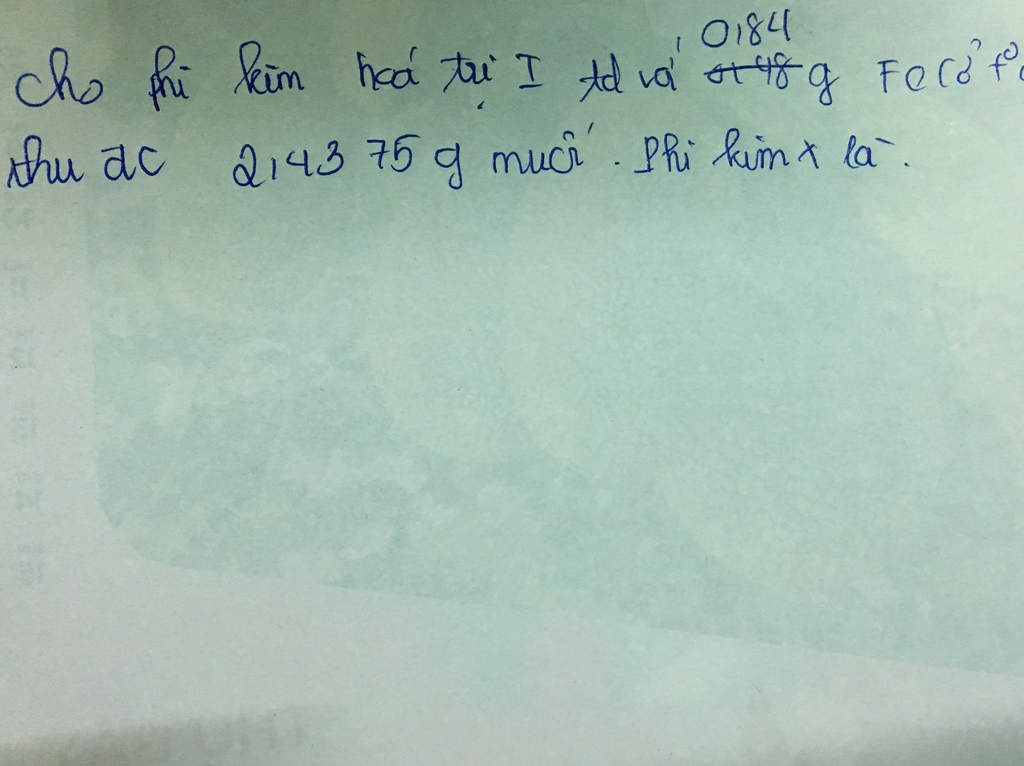 Cho phi kim hoá trị I td vói 0,84 g Fe (ở tº
thu đc 2,43 75 g muối. Phi kim x là.